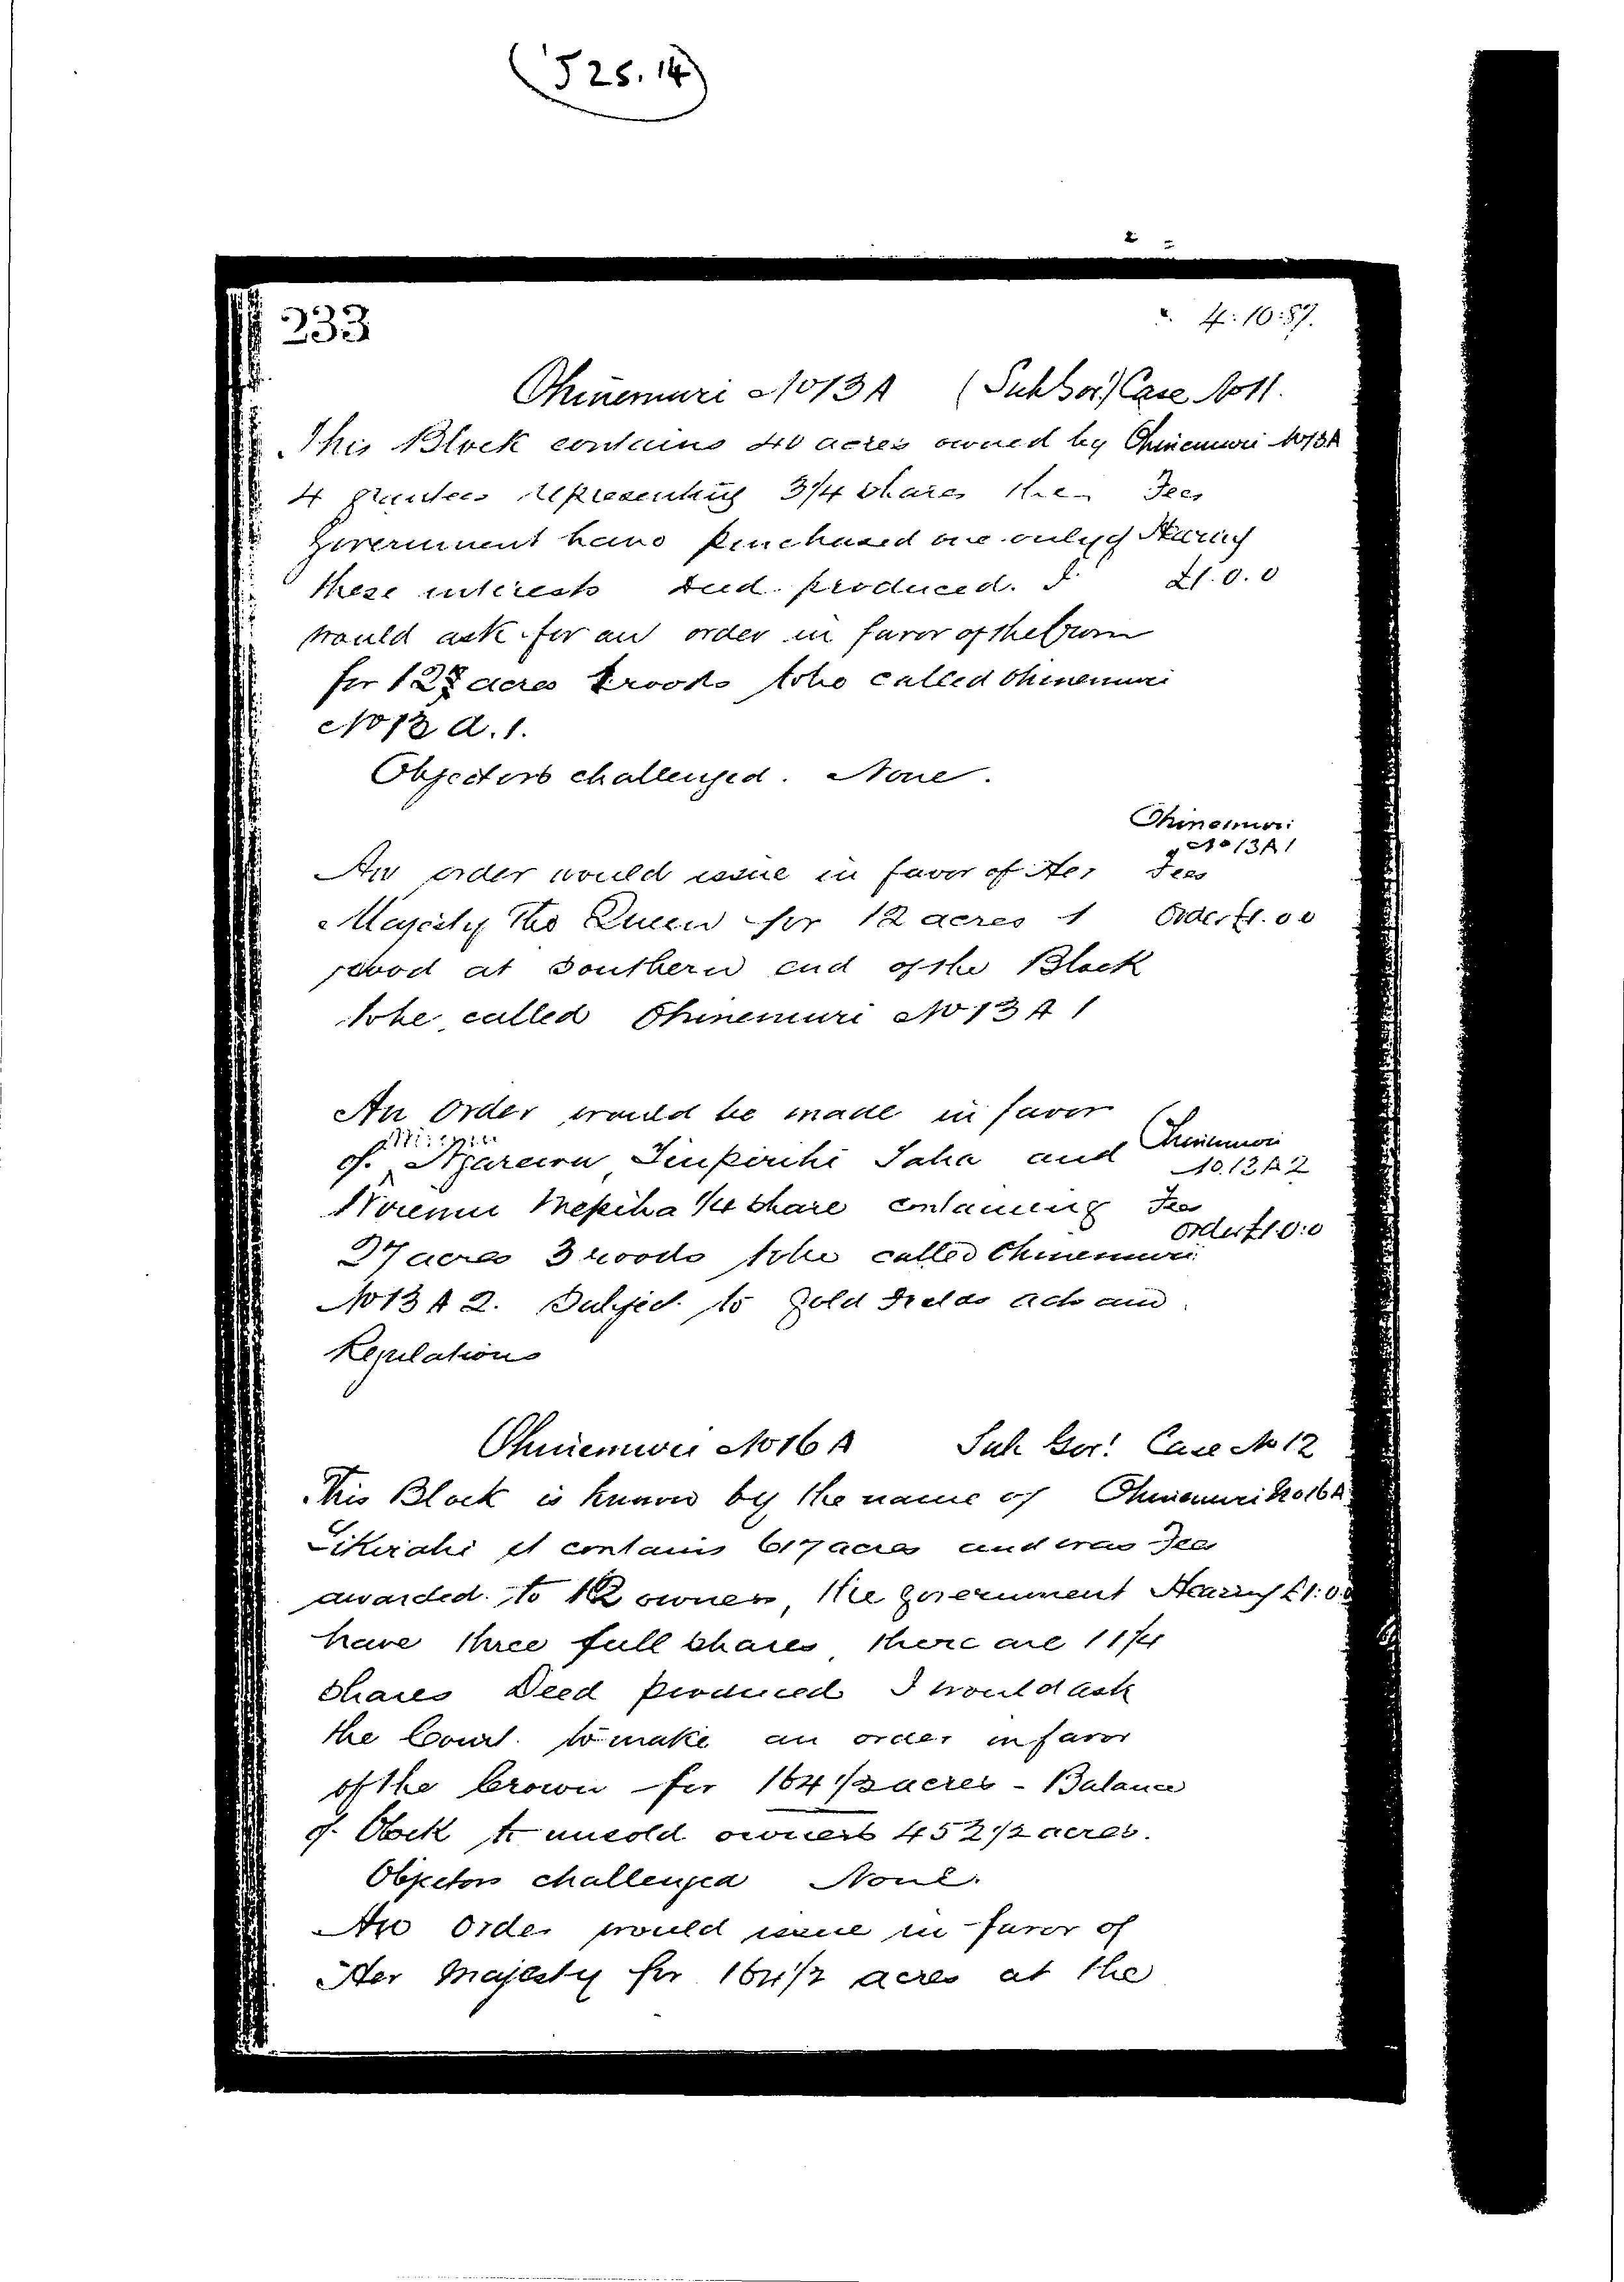 (J 25.14)
233
4.10.87.
Ohinemuri No 13A (Sub Gov!) Case No 11.
This Block contains 40 acres owned by Ohinemuri No 13A
4 grantees representing 3 1/4 shares the Fees
Government have purchased one only of Hearing
these interests deed produced. I £1.0.0
would ask for an order in favor of the Crown
for 12 acres roods tobe called Ohinemuri
No 13 A.1.
Objectors challenged. None.
Ohinemuri
No 13A1
An order would issue in favor of Her Fees
Majesty the Queen for 12 acres 1 Order £1.0.0
rood at Southern end of the Block
tobe called Ohinemuri No 13 A 1
An Order would be made in favor
of Ngareira Taha and Ohinemuri
No.13A2
share containing Fees
Order £1.0.0
27 acres 3 roods tobe called Ohinemuri
No 13 A 2. Subject to Gold Fields Acts and
Regulations
Ohinemuri No 16 A Sub Gov! Case No 12
This Block is known by the name of Ohinemuri No 16A
it contains 617 acres and was Fees
awarded to 12 owners, the Government Hearing £1:0.0
have three full shares, there are 11 1/4
shares Deed produced I would ask
the Court to make an order in favor
of the Crown for 164 1/2 acres - Balance
of Block to unsold owners 452 1/2 acres.
Objectors challenged None.
An Order would issue in favor of
Her Majesty for 164 1/2 acres at the